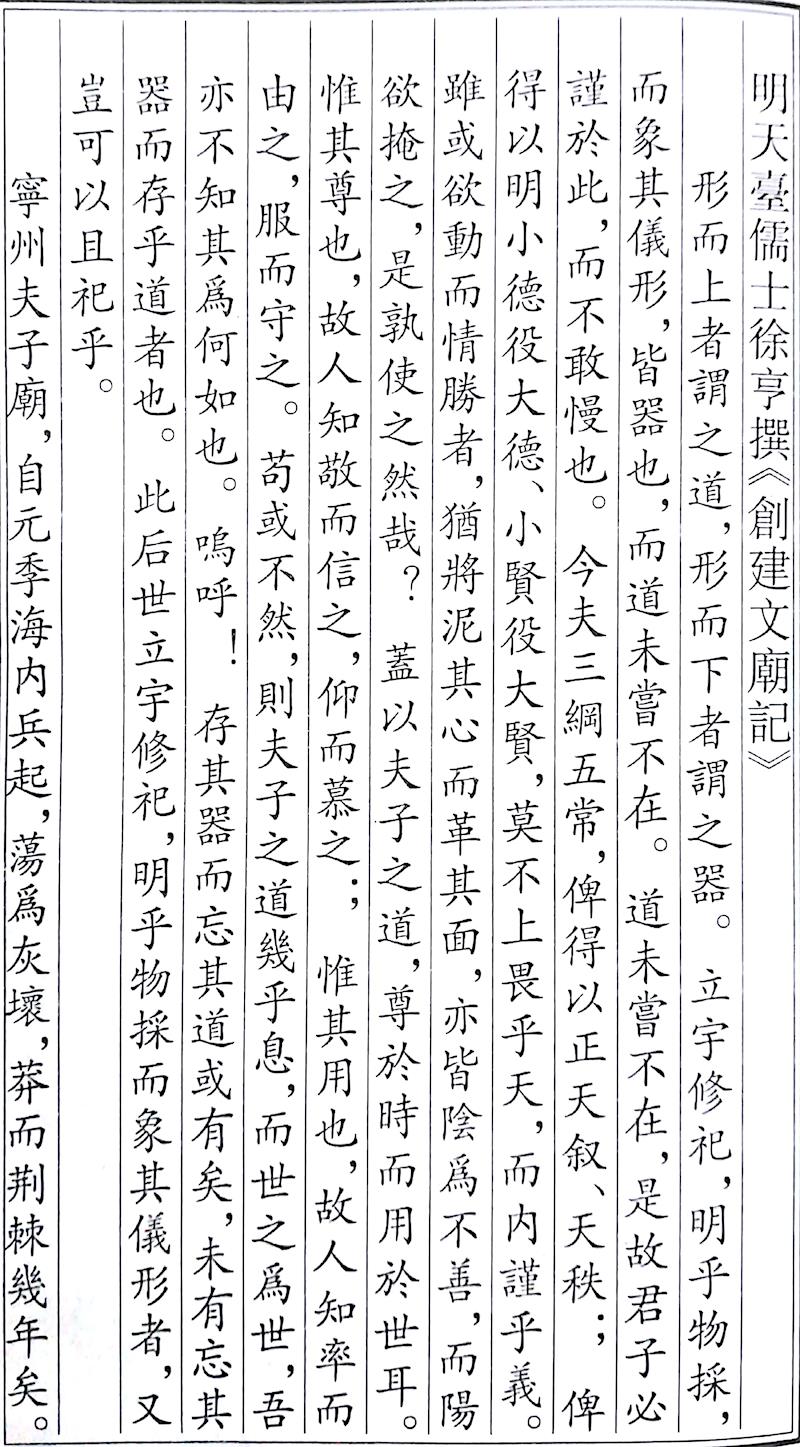 明天臺儒士徐亨撰《創建文廟記》
形而上者謂之道，形而下者謂之器。立宇修祀，明乎物採，
而象其儀形，皆器也，而道未嘗不在。道未嘗不在，是故君子必
謹於此，而不敢慢也。今夫三綱五常，俾得以正天叙、天秩；俾
得以明小德役大德、小賢役大賢，莫不上畏乎天，而内謹乎義。
雖或欲動而情勝者，猶將泥其心而革其面，亦皆陰爲不善，而陽
欲掩之，是孰使之然哉？蓋以夫子之道，尊於時而用於世耳。
惟其尊也，故人知敬而信之，仰而慕之；惟其用也，故人知率而
由之，服而守之。苟或不然，則夫子之道幾乎息，而世之爲世，吾
亦不知其爲何如也。嗚呼！存其器而忘其道或有矣，未有忘其
器而存乎道者也。此后世立宇修祀，明乎物採而象其儀形者，又
豈可以且祀乎。
寧州夫子廟，自元季海内兵起，蕩爲灰壞，莽而荆棘幾年矣。